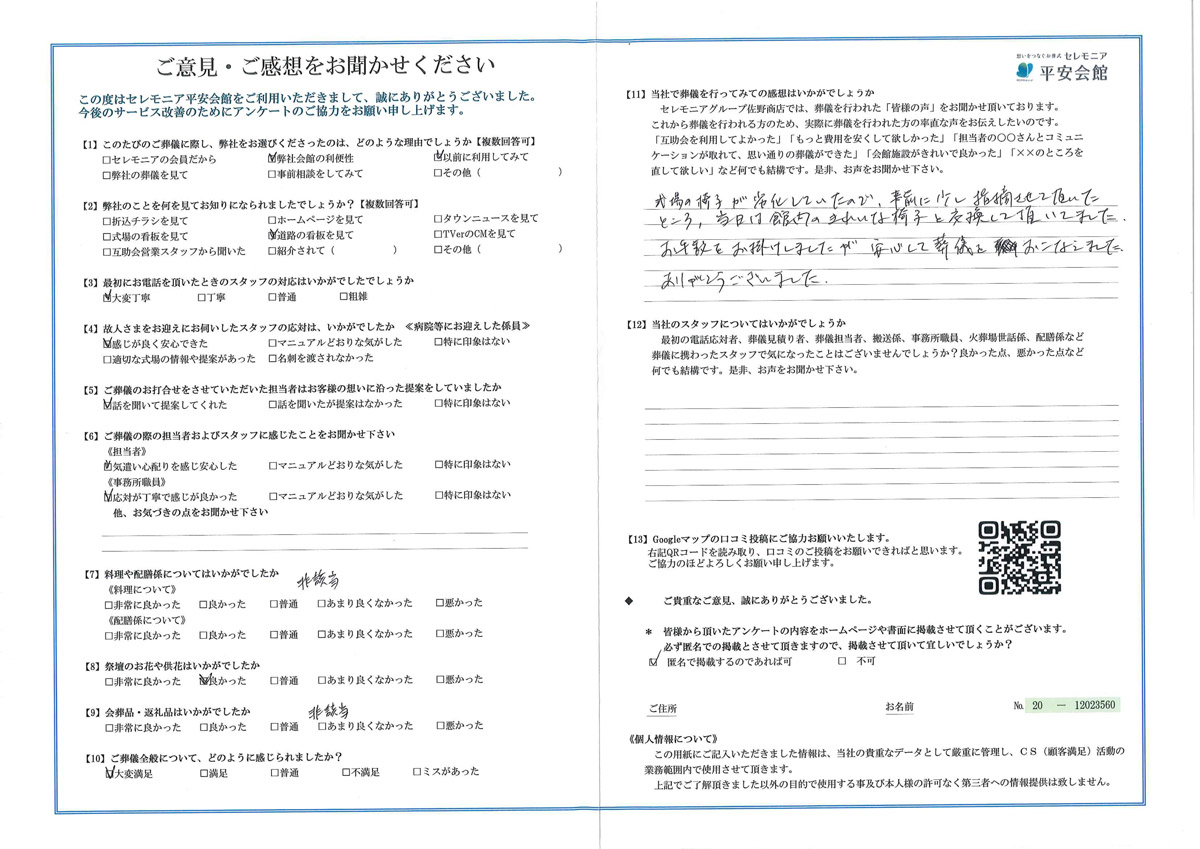 ご意見・ご感想をお聞かせください
この度はセレモニア平安会館をご利用いただきまして、誠にありがとうございました。
今後のサービス改善のためにアンケートのご協力をお願い申し上げます。
【1】このたびのご葬儀に際し、弊社をお選びくださったのは、どのような理由でしょうか【複数回答可】
□セレモニアの会員だから ☑弊社会館の利便性 ☑以前に利用してみて
□弊社の葬儀を見て □事前相談をしてみて □その他（ ）
【2】弊社のことを何を見てお知りになられましたでしょうか？【複数回答可】
□折込チラシを見て □ホームページを見て □タウンニュースを見て
□式場の看板を見て ☑道路の看板を見て □TVerのCMを見て
□互助会営業スタッフから聞いた □紹介されて（ ） □その他（ ）
【3】最初にお電話を頂いたときのスタッフの対応はいかがでしたでしょうか
☑大変丁寧 □丁寧 □普通 □粗雑
【4】故人さまをお迎えにお伺いしたスタッフの応対は、いかがでしたか ≪病院等にお迎えした係員≫
☑感じが良く安心できた □マニュアルどおりな気がした □特に印象はない
□適切な式場の情報や提案があった □名刺を渡されなかった
【5】ご葬儀のお打合せをさせていただいた担当者はお客様の想いに沿った提案をしていましたか
☑話を聞いて提案してくれた □話を聞いたが提案はなかった □特に印象はない
【6】ご葬儀の際の担当者およびスタッフに感じたことをお聞かせ下さい
《担当者》
☑気遣い心配りを感じ安心した □マニュアルどおりな気がした □特に印象はない
《事務所職員》
☑応対が丁寧で感じが良かった □マニュアルどおりな気がした □特に印象はない
他、お気づきの点をお聞かせ下さい
【7】料理や配膳係についてはいかがでしたか 非該当
《料理について》
□非常に良かった □良かった □普通 □あまり良くなかった □悪かった
《配膳係について》
□非常に良かった □良かった □普通 □あまり良くなかった □悪かった
【8】祭壇のお花や供花はいかがでしたか
□非常に良かった ☑良かった □普通 □あまり良くなかった □悪かった
【9】会葬品・返礼品はいかがでしたか 非該当
□非常に良かった □良かった □普通 □あまり良くなかった □悪かった
【10】ご葬儀全般について、どのように感じられましたか？
☑大変満足 □満足 □普通 □不満足 □ミスがあった
想いをつなぐお葬式 セレモニア
平安会館
【11】当社で葬儀を行ってみての感想はいかがでしょうか
セレモニアグループ佐野商店では、葬儀を行われた「皆様の声」をお聞かせ頂いております。
これから葬儀を行われる方のため、実際に葬儀を行われた方の率直な声をお伝えしたいのです。
「互助会を利用してよかった」「もっと費用を安くして欲しかった」「担当者の〇〇さんとコミュニ
ケーションが取れて、思い通りの葬儀ができた」「会館施設がきれいで良かった」「××のところを
直して欲しい」など何でも結構です。是非、お声をお聞かせ下さい。
式場の椅子が劣化していたので、事前に少し指摘させて頂いた
ところ、当日は館内のきれいな椅子と交換して頂いてました。
お手数をお掛けしましたが安心して葬儀をおこなえました。
ありがとうございました。
【12】当社のスタッフについてはいかがでしょうか
最初の電話応対者、葬儀見積り者、葬儀担当者、搬送係、事務所職員、火葬場世話係、配膳係など
葬儀に携わったスタッフで気になったことはございませんでしょうか？良かった点、悪かった点など
何でも結構です。是非、お声をお聞かせ下さい。
【13】Googleマップの口コミ投稿にご協力お願いいたします。
右記QRコードを読み取り、口コミのご投稿をお願いできればと思います。
ご協力のほどよろしくお願い申し上げます。
◆ ご貴重なご意見、誠にありがとうございました。
＊ 皆様から頂いたアンケートの内容をホームページや書面に掲載させて頂くことがございます。
必ず匿名での掲載とさせて頂きますので、掲載させて頂いて宜しいでしょうか？
☑ 匿名で掲載するのであれば可 □ 不可
ご住所 お名前 № 20 － 12023560
《個人情報について》
この用紙にご記入いただきました情報は、当社の貴重なデータとして厳重に管理し、ＣＳ（顧客満足）活動の
業務範囲内で使用させて頂きます。
上記でご了解頂きました以外の目的で使用する事及び本人様の許可なく第三者への情報提供は致しません。